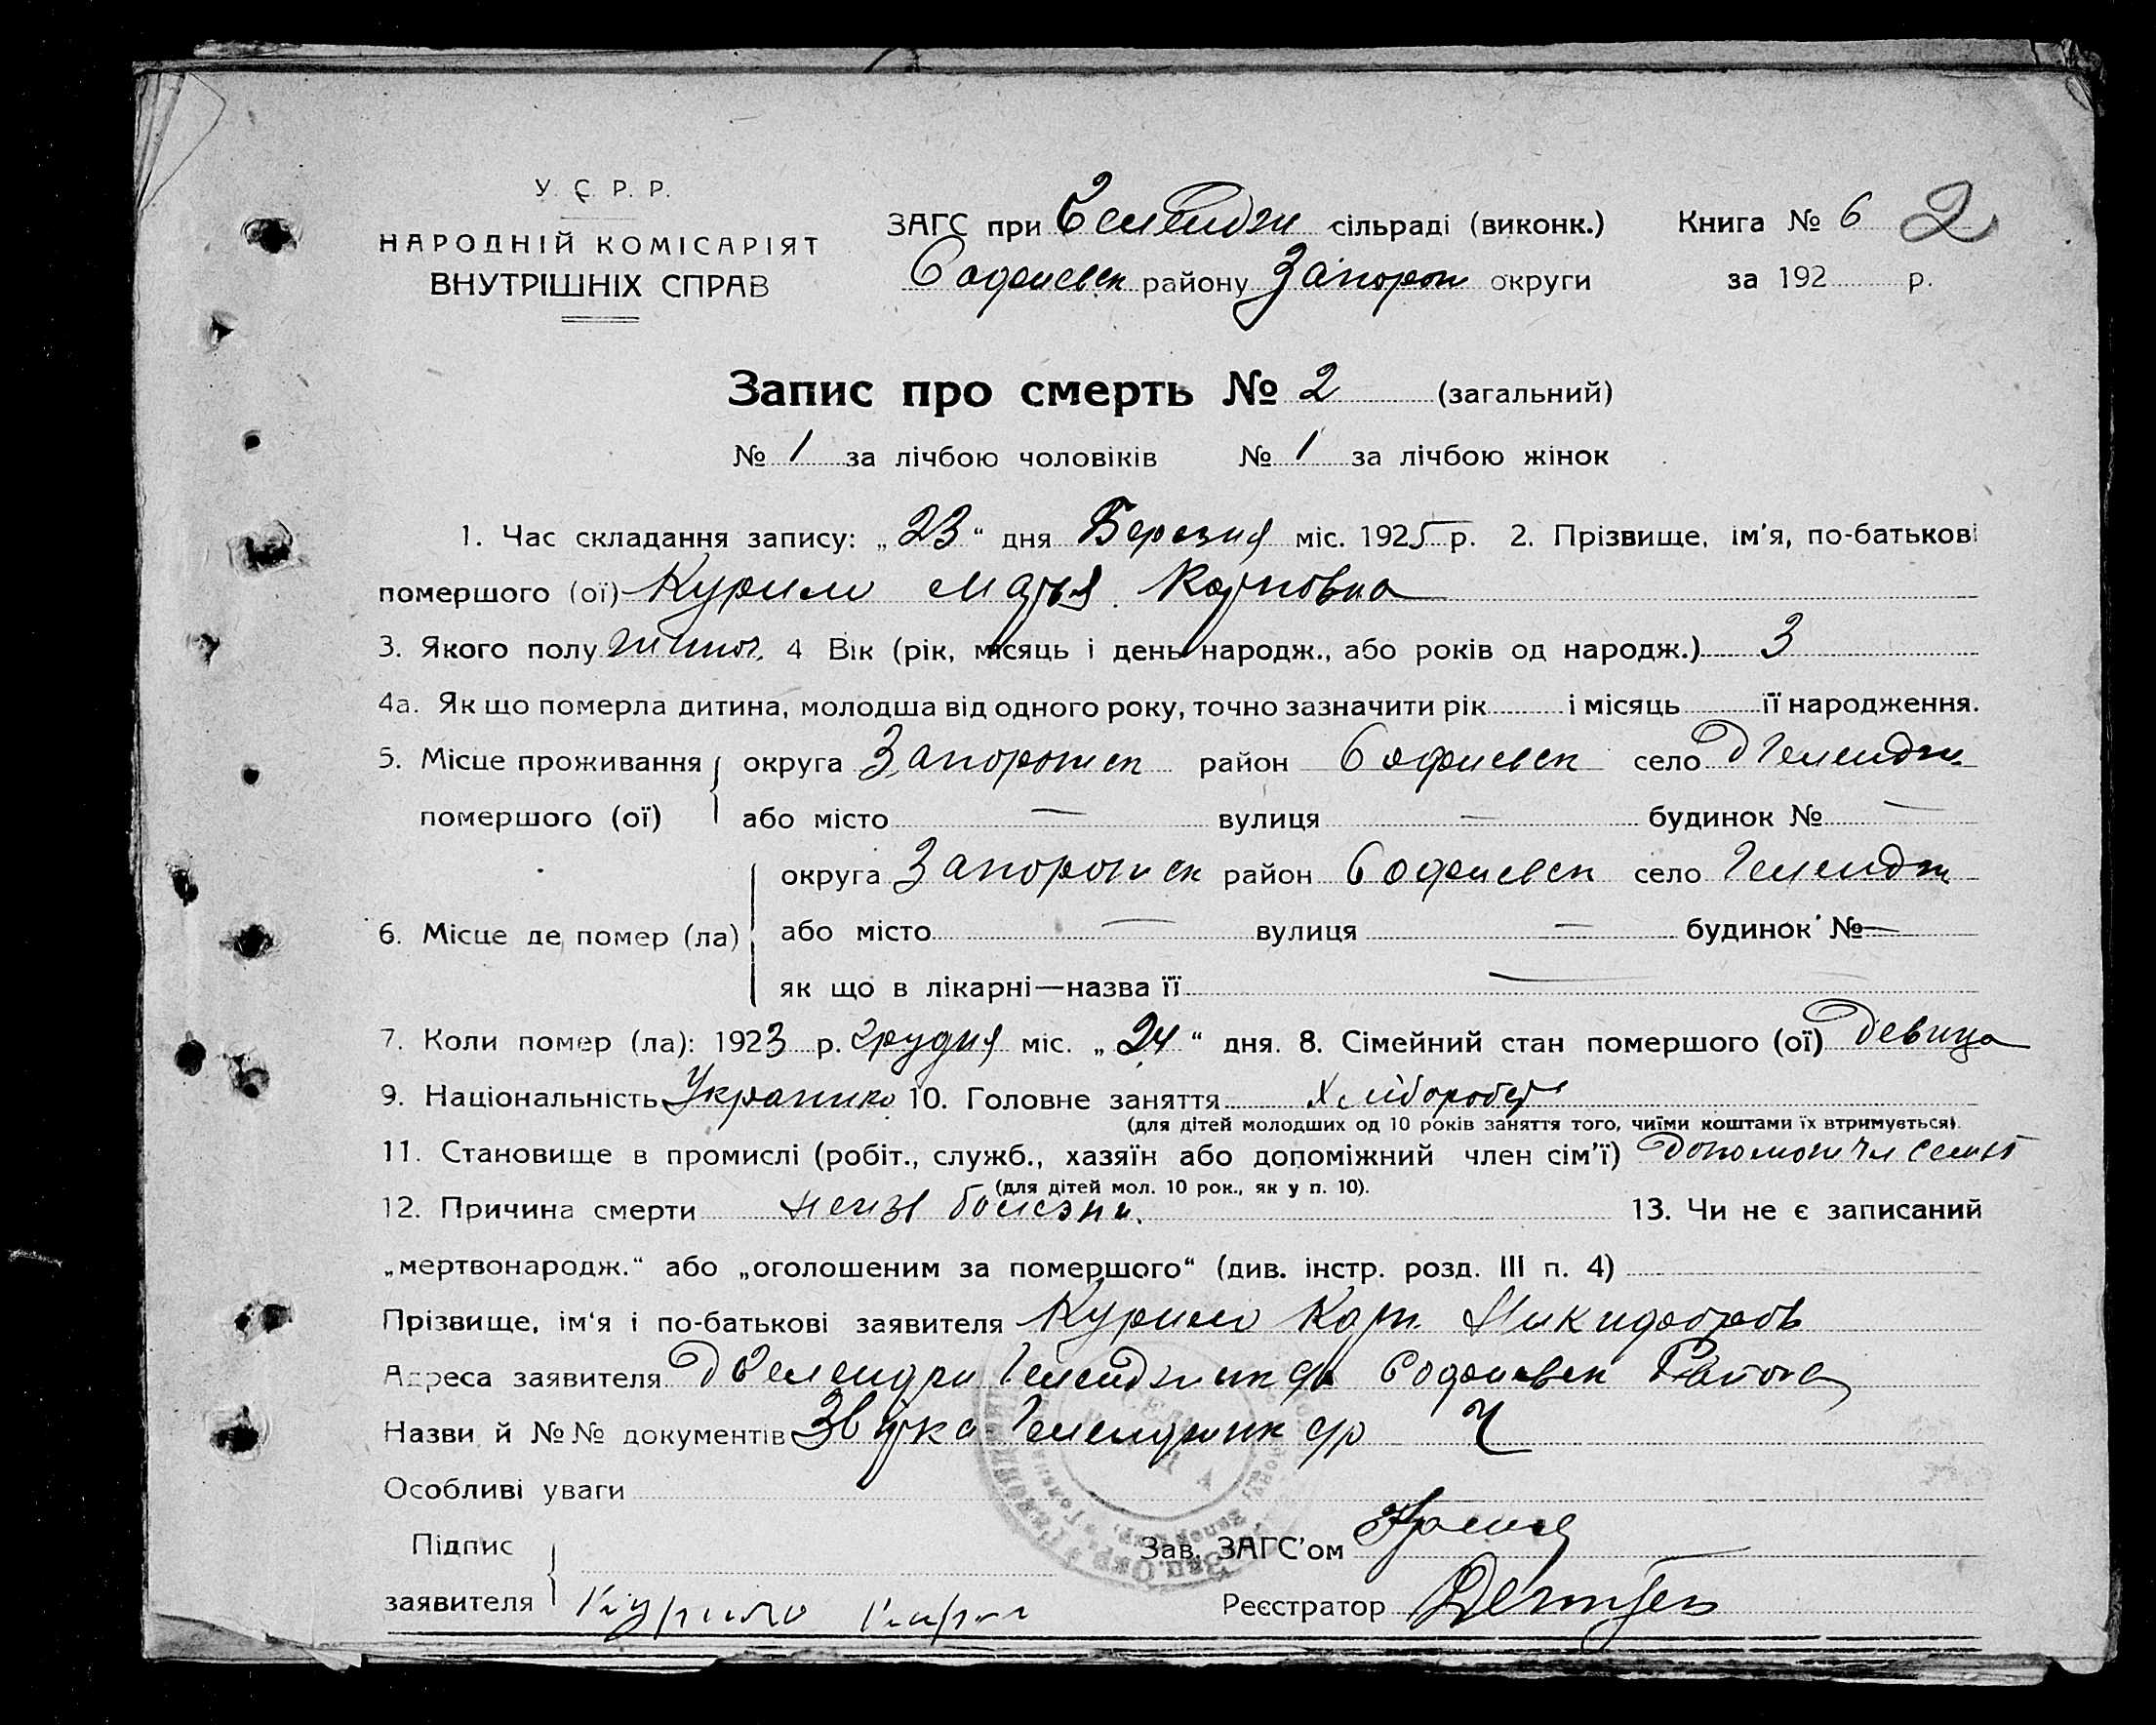 У. С. Р. Р.
НАРОДНІЙ КОМІСАРІЯТ
ВНУТРІШНІХ СПРАВ
ЗАГС при сільраді (виконк.)
Софиевск району Запорож округи
Книга № 6 2
за 192 р.
Запис про смерть № 2 (загальний)
№ 1 за лічбою чоловіків № 1 за лічбою жінок
1. Час складання запису: „23“ дня Березня міс. 1925 р. 2. Прізвище, ім'я, по-батькові
помершого (ої) Курило Марья Карповна
3. Якого полу жіноч. 4 Вік (рік, місяць і день народж., або років од народж.) 3
4а. Як що померла дитина, молодша від одного року, точно зазначити рік і місяць її народження.
5. Місце проживання помершого (ої) округа Запорожск район Софиевск село
або місто — вулиця — будинок № —
6. Місце де помер (ла) округа Запорожск район Софиевск село Гелендж
або місто — вулиця — будинок № —
як що в лікарні—назва її —
7. Коли помер (ла): 1923 р. грудня міс. „24“ дня. 8. Сімейний стан помершого (ої) девица
9. Національність Украинка 10. Головне заняття Хлібороб
(для дітей молодших од 10 років заняття того, чиїми коштами їх втримується).
11. Становище в промислі (робіт., служб., хазяїн або допоміжний член сім'ї) допомож чл семьї
(для дітей мол. 10 рок., як у п. 10).
12. Причина смерти неизв болезни. 13. Чи не є записаний
„мертвонародж.“ або „оголошеним за помершого“ (див. інстр. розд. III п. 4)
Прізвище, ім'я і по-батькові заявителя Курило Карп Никифоров
Адреса заявителя Софиевск Района
Назви й №№ документів
Особливі уваги
Підпис заявителя Курило Карпо
Зав. ЗАГС'ом
Реєстратор